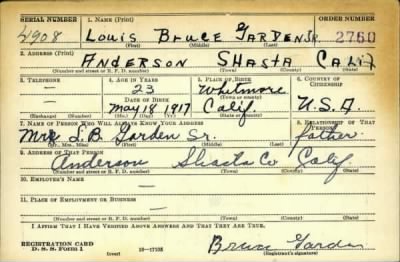 SERIAL NUMBER 1. NAME (Print)
4908 LOUIS BRUCE GARDEN SR. 2760
(First) (Middle) (Last)
2. ADDRESS (Print)
ANDERSON SHASTA CALIF
(Number and street or R. F. D. number) (Town) (County) (State)
3. TELEPHONE 4. AGE IN YEARS 5. PLACE OF BIRTH 6. COUNTRY OF CITIZENSHIP
— 23 Whitmore
DATE OF BIRTH (Town or county)
— May 18, 1917 Calif U.S.A.
(Exchange) (Number) (Mo.) (Day) (Yr.) (State or country)
7. NAME OF PERSON WHO WILL ALWAYS KNOW YOUR ADDRESS 8. RELATIONSHIP OF THAT PERSON
L.B. Garden Sr. father
9. ADDRESS OF THAT PERSON
Anderson Shasta Co Calif
(Number and street or R. F. D. number) (Town) (County) (State)
10. EMPLOYER'S NAME
—
11. PLACE OF EMPLOYMENT OR BUSINESS
—
(Number and street or R. F. D. number) (Town) (County) (State)
I AFFIRM THAT I HAVE VERIFIED ABOVE ANSWERS AND THAT THEY ARE TRUE.
REGISTRATION CARD
D. S. S. Form 1 (over) Bruce Garden
(Registrant's signature)